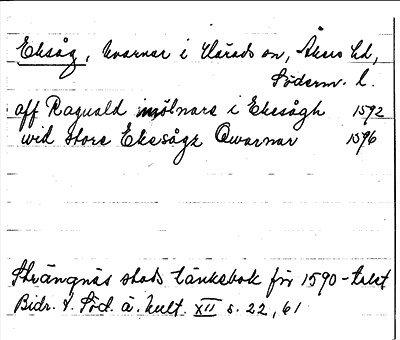 Eksåg, kvarnar i Härads sn, Åkers hd,
Söderm. l.
aff Raguald mjölnare i Eksågh 1592
wid store Eksågz Qwarnar 1596
Strängnäs stads tänkebok för 1590-talet
Bidr. t. Söd. ä. kult. XII s. 22, 61